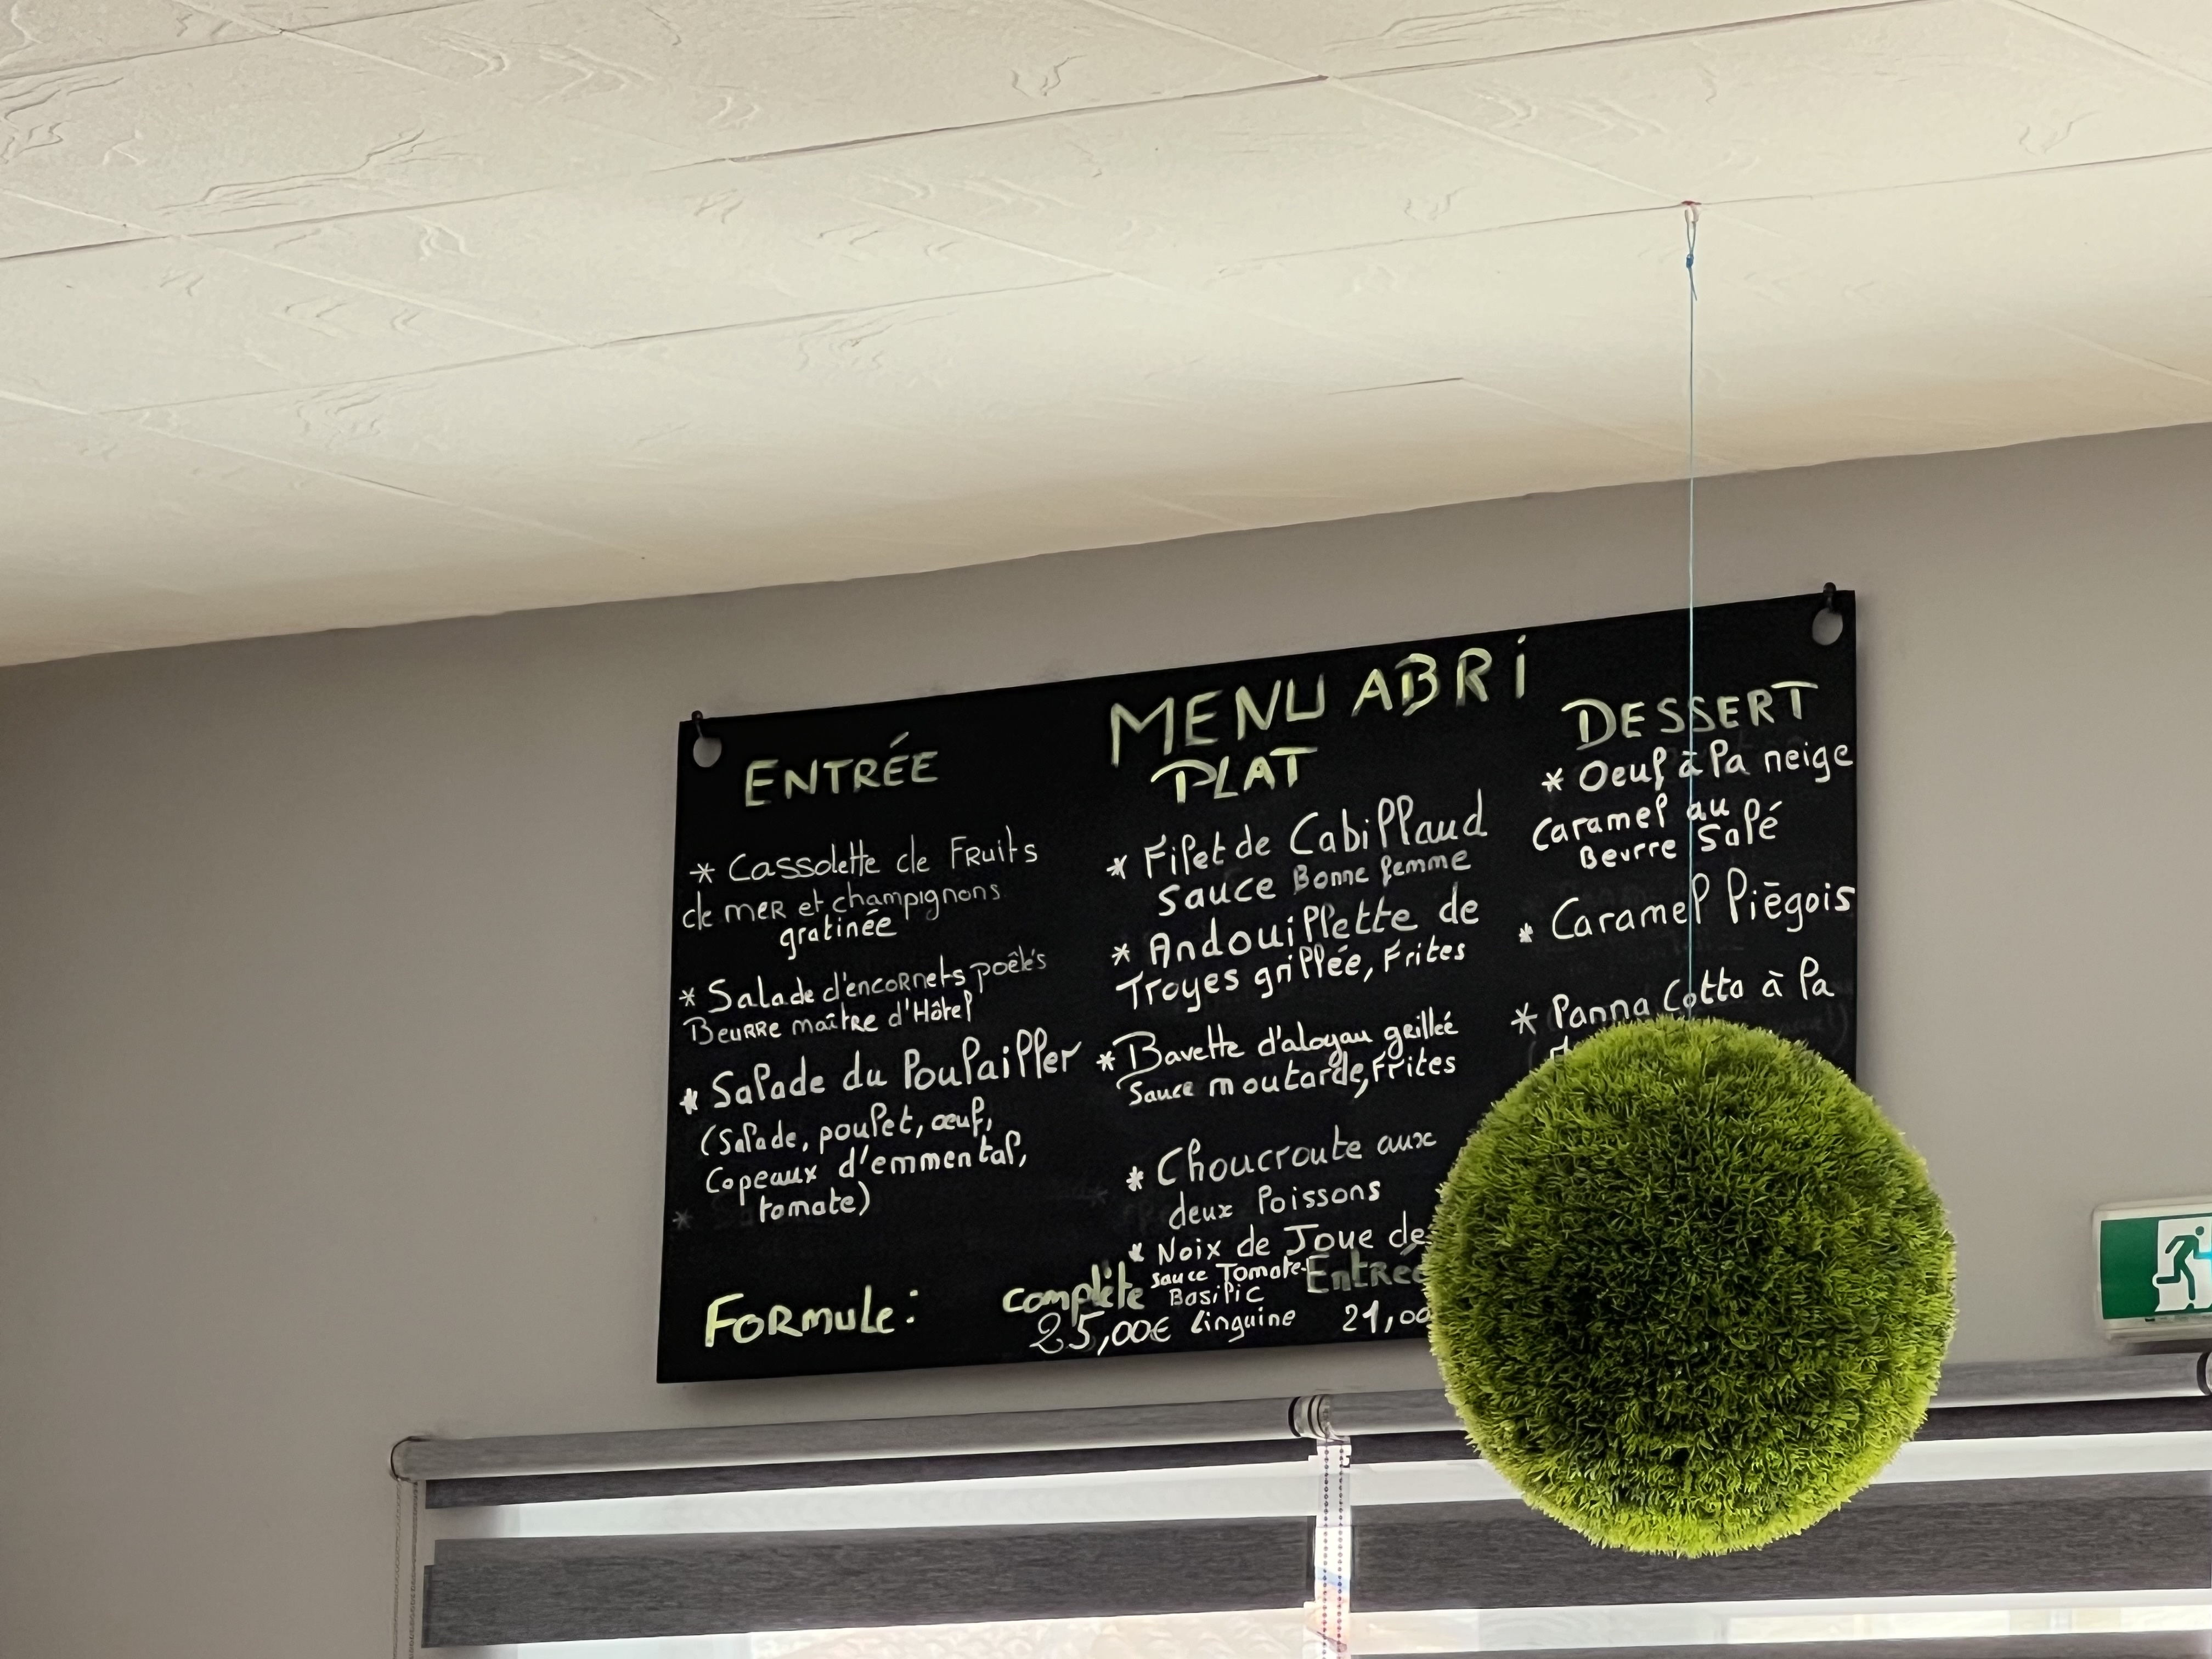 MENU ABRi
ENTRÉE
* Cassolette de Fruits
de mer et champignons
gratinée
* Salade d'encornets poêlés
Beurre maître d'Hôtel
* Salade du Poulailler
(Salade, poulet, œuf,
Copeaux d'emmental,
tomate)
PLAT
* Filet de Cabillaud
Sauce Bonne femme
* Andouillette de
Troyes grillée, Frites
* Bavette d'aloyau grillée
Sauce moutarde, Frites
* Choucroute aux
deux Poissons
* Noix de Joue de
sauce Tomate-
Basilic
Linguine
DESSERT
* Oeuf à la neige
Caramel au
Beurre Salé
* Caramel Liègois
* Panna Cotta à la
Formule:
Complète
25,00€
Entrée
21,00